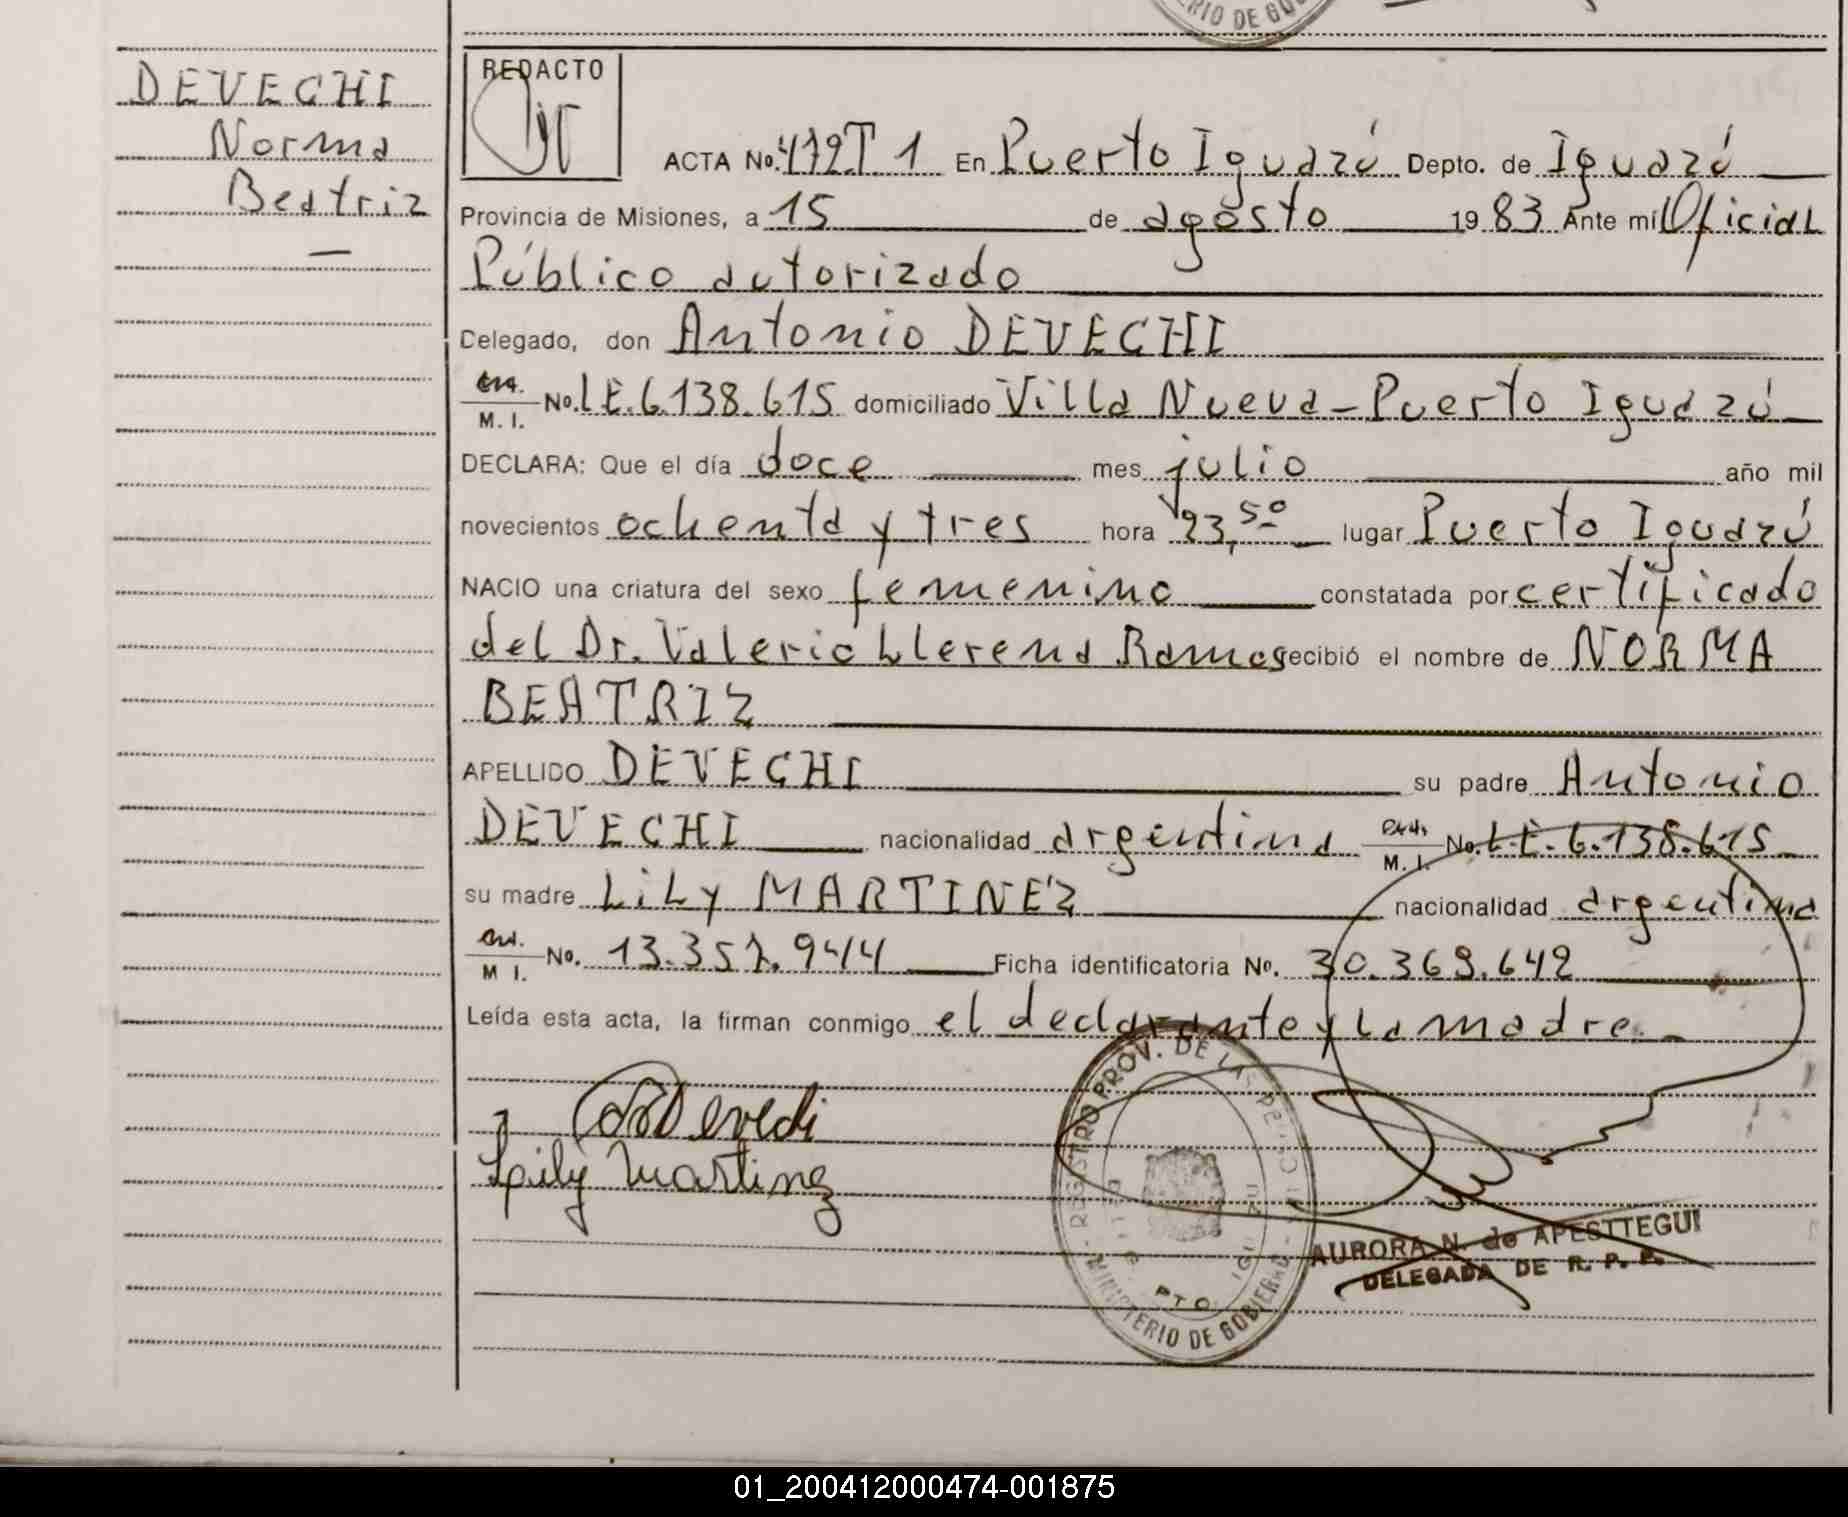 RIO DE GO
DEVECHI
Norma
Beatriz
—
REDACTO
ACTA No. 472T 1 En Puerto Iguazú Depto. de Iguazú
Provincia de Misiones, a 15 de agosto 1983 Ante mí Oficial
Público autorizado
Delegado, don Antonio DEVECHI
M. I. No. L.E. 6.138.615 domiciliado Villa Nueva - Puerto Iguazú
DECLARA: Que el día doce mes julio año mil
novecientos ochenta y tres hora 23,50 lugar Puerto Iguazú
NACIO una criatura del sexo femenino constatada por certificado
del Dr. Valerio Llerena Ramos recibió el nombre de NORMA
BEATRIZ
APELLIDO DEVECHI su padre Antonio
DEVECHI nacionalidad argentina M. I. No. L.E. 6.138.615
su madre LiLy MARTINEZ nacionalidad argentina
M I. No. 13.357.944 Ficha identificatoria No. 30.369.642
Leída esta acta, la firman conmigo el declarante y la madre.-
Devechi
Lily Martinez
REGISTRO PROV. DE LAS PERSONAS
PTO. IGUAZU
MINISTERIO DE GOBIERNO
AURORA N. de APESTTEGUI
DELEGADA DE R. P. P.
01_200412000474-001875